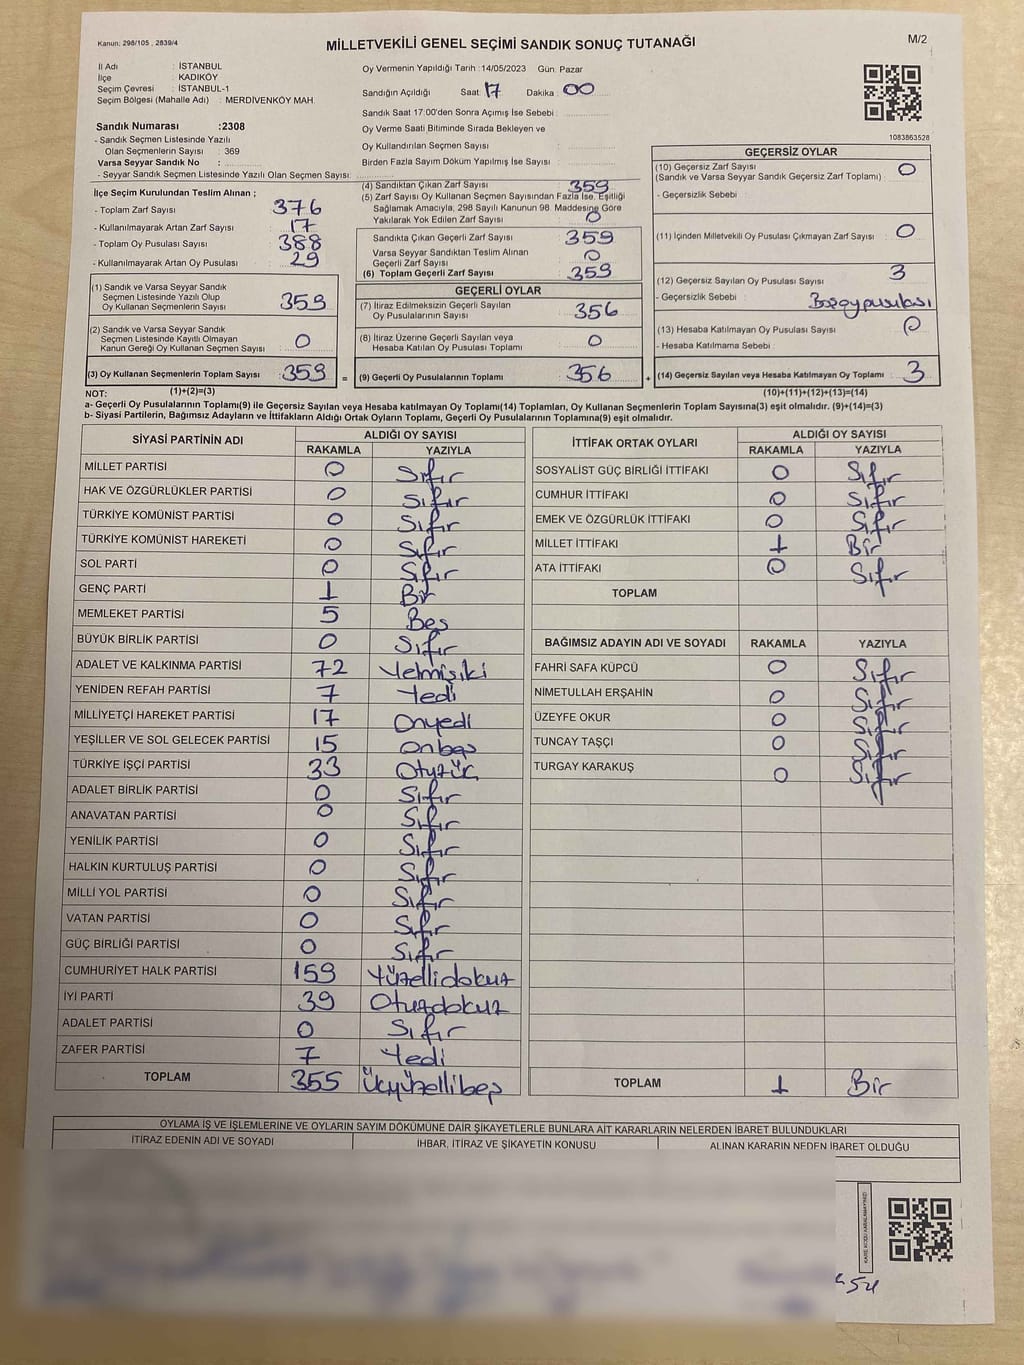 Kanun: 298/105 , 2839/4
MİLLETVEKİLİ GENEL SEÇİMİ SANDIK SONUÇ TUTANAĞI
M/2
İl Adı : İSTANBUL
İlçe : KADIKÖY
Seçim Çevresi : İSTANBUL-1
Seçim Bölgesi (Mahalle Adı) : MERDİVENKÖY MAH.
Sandık Numarası :2308
- Sandık Seçmen Listesinde Yazılı
Olan Seçmenlerin Sayısı : 369
Varsa Seyyar Sandık No :
- Seyyar Sandık Seçmen Listesinde Yazılı Olan Seçmen Sayısı:
Oy Vermenin Yapıldığı Tarih :14/05/2023 Gün: Pazar
Sandığın Açıldığı Saat 17 Dakika : 00
Sandık Saat 17:00'den Sonra Açımış İse Sebebi :
Oy Verme Saati Bitiminde Sırada Bekleyen ve
Oy Kullandırılan Seçmen Sayısı :
Birden Fazla Sayım Döküm Yapılmış İse Sayısı :
1083863528
İlçe Seçim Kurulundan Teslim Alınan ;
- Toplam Zarf Sayısı : 376
- Kullanılmayarak Artan Zarf Sayısı : 17
- Toplam Oy Pusulası Sayısı : 388
- Kullanılmayarak Artan Oy Pusulası : 29
(1) Sandık ve Varsa Seyyar Sandık
Seçmen Listesinde Yazılı Olup
Oy Kullanan Seçmenlerin Sayısı : 359
(2) Sandık ve Varsa Seyyar Sandık
Seçmen Listesinde Kayıtlı Olmayan
Kanun Gereği Oy Kullanan Seçmen Sayısı : 0
(3) Oy Kullanan Seçmenlerin Toplam Sayısı : 359
(4) Sandıktan Çıkan Zarf Sayısı : 359
(5) Zarf Sayısı Oy Kullanan Seçmen Sayısından Fazla İse, Eşitliği
Sağlamak Amacıyla, 298 Sayılı Kanunun 98. Maddesine Göre
Yakılarak Yok Edilen Zarf Sayısı : 0
Sandıkta Çıkan Geçerli Zarf Sayısı : 359
Varsa Seyyar Sandıktan Teslim Alınan
Geçerli Zarf Sayısı : 0
(6) Toplam Geçerli Zarf Sayısı : 359
GEÇERLİ OYLAR
(7) İtiraz Edilmeksizin Geçerli Sayılan
Oy Pusulalarının Sayısı : 356
(8) İtiraz Üzerine Geçerli Sayılan veya
Hesaba Katılan Oy Pusulası Toplamı : 0
= (9) Geçerli Oy Pusulalarının Toplamı : 356
GEÇERSİZ OYLAR
(10) Geçersiz Zarf Sayısı : 0
(Sandık ve Varsa Seyyar Sandık Geçersiz Zarf Toplamı)
- Geçersizlik Sebebi :
(11) İçinden Milletvekili Oy Pusulası Çıkmayan Zarf Sayısı : 0
(12) Geçersiz Sayılan Oy Pusulası Sayısı : 3
- Geçersizlik Sebebi : Boş oy pusulası
(13) Hesaba Katılmayan Oy Pusulası Sayısı : 0
- Hesaba Katılmama Sebebi :
+ (14) Geçersiz Sayılan veya Hesaba Katılmayan Oy Toplamı : 3
NOT: (1)+(2)=(3)
(10)+(11)+(12)+(13)=(14)
a- Geçerli Oy Pusulalarının Toplamı(9) ile Geçersiz Sayılan veya Hesaba katılmayan Oy Toplamı(14) Toplamları, Oy Kullanan Seçmenlerin Toplam Sayısına(3) eşit olmalıdır. (9)+(14)=(3)
b- Siyasi Partilerin, Bağımsız Adayların ve İttifakların Aldığı Ortak Oyların Toplamı, Geçerli Oy Pusulalarının Toplamına(9) eşit olmalıdır.
SİYASİ PARTİNİN ADI ALDIĞI OY SAYISI
RAKAMLA YAZIYLA
MİLLET PARTİSİ 0 Sıfır
HAK VE ÖZGÜRLÜKLER PARTİSİ 0 Sıfır
TÜRKİYE KOMÜNİST PARTİSİ 0 Sıfır
TÜRKİYE KOMÜNİST HAREKETİ 0 Sıfır
SOL PARTİ 0 Sıfır
GENÇ PARTİ 1 Bir
MEMLEKET PARTİSİ 5 Beş
BÜYÜK BİRLİK PARTİSİ 0 Sıfır
ADALET VE KALKINMA PARTİSİ 72 Yetmişiki
YENİDEN REFAH PARTİSİ 7 Yedi
MİLLİYETÇİ HAREKET PARTİSİ 17 Onyedi
YEŞİLLER VE SOL GELECEK PARTİSİ 15 Onbeş
TÜRKİYE İŞÇİ PARTİSİ 33 Otuzüç
ADALET BİRLİK PARTİSİ 0 Sıfır
ANAVATAN PARTİSİ 0 Sıfır
YENİLİK PARTİSİ 0 Sıfır
HALKIN KURTULUŞ PARTİSİ 0 Sıfır
MİLLİ YOL PARTİSİ 0 Sıfır
VATAN PARTİSİ 0 Sıfır
GÜÇ BİRLİĞİ PARTİSİ 0 Sıfır
CUMHURİYET HALK PARTİSİ 159 Yüzellidokuz
İYİ PARTİ 39 Otuzdokuz
ADALET PARTİSİ 0 Sıfır
ZAFER PARTİSİ 7 Yedi
TOPLAM 355 Üçyüzellibeş
İTTİFAK ORTAK OYLARI ALDIĞI OY SAYISI
RAKAMLA YAZIYLA
SOSYALİST GÜÇ BİRLİĞİ İTTİFAKI 0 Sıfır
CUMHUR İTTİFAKI 0 Sıfır
EMEK VE ÖZGÜRLÜK İTTİFAKI 0 Sıfır
MİLLET İTTİFAKI 1 Bir
ATA İTTİFAKI 0 Sıfır
TOPLAM
BAĞIMSIZ ADAYIN ADI VE SOYADI RAKAMLA YAZIYLA
FAHRİ SAFA KÜPCÜ 0 Sıfır
NİMETULLAH ERŞAHİN 0 Sıfır
ÜZEYFE OKUR 0 Sıfır
TUNCAY TAŞÇI 0 Sıfır
TURGAY KARAKUŞ 0 Sıfır
TOPLAM 1 Bir
OYLAMA İŞ VE İŞLEMLERİNE VE OYLARIN SAYIM DÖKÜMÜNE DAİR ŞİKAYETLERLE BUNLARA AİT KARARLARIN NELERDEN İBARET BULUNDUKLARI
İTİRAZ EDENİN ADI VE SOYADI İHBAR, İTİRAZ VE ŞİKAYETİN KONUSU ALINAN KARARIN NEDEN İBARET OLDUĞU